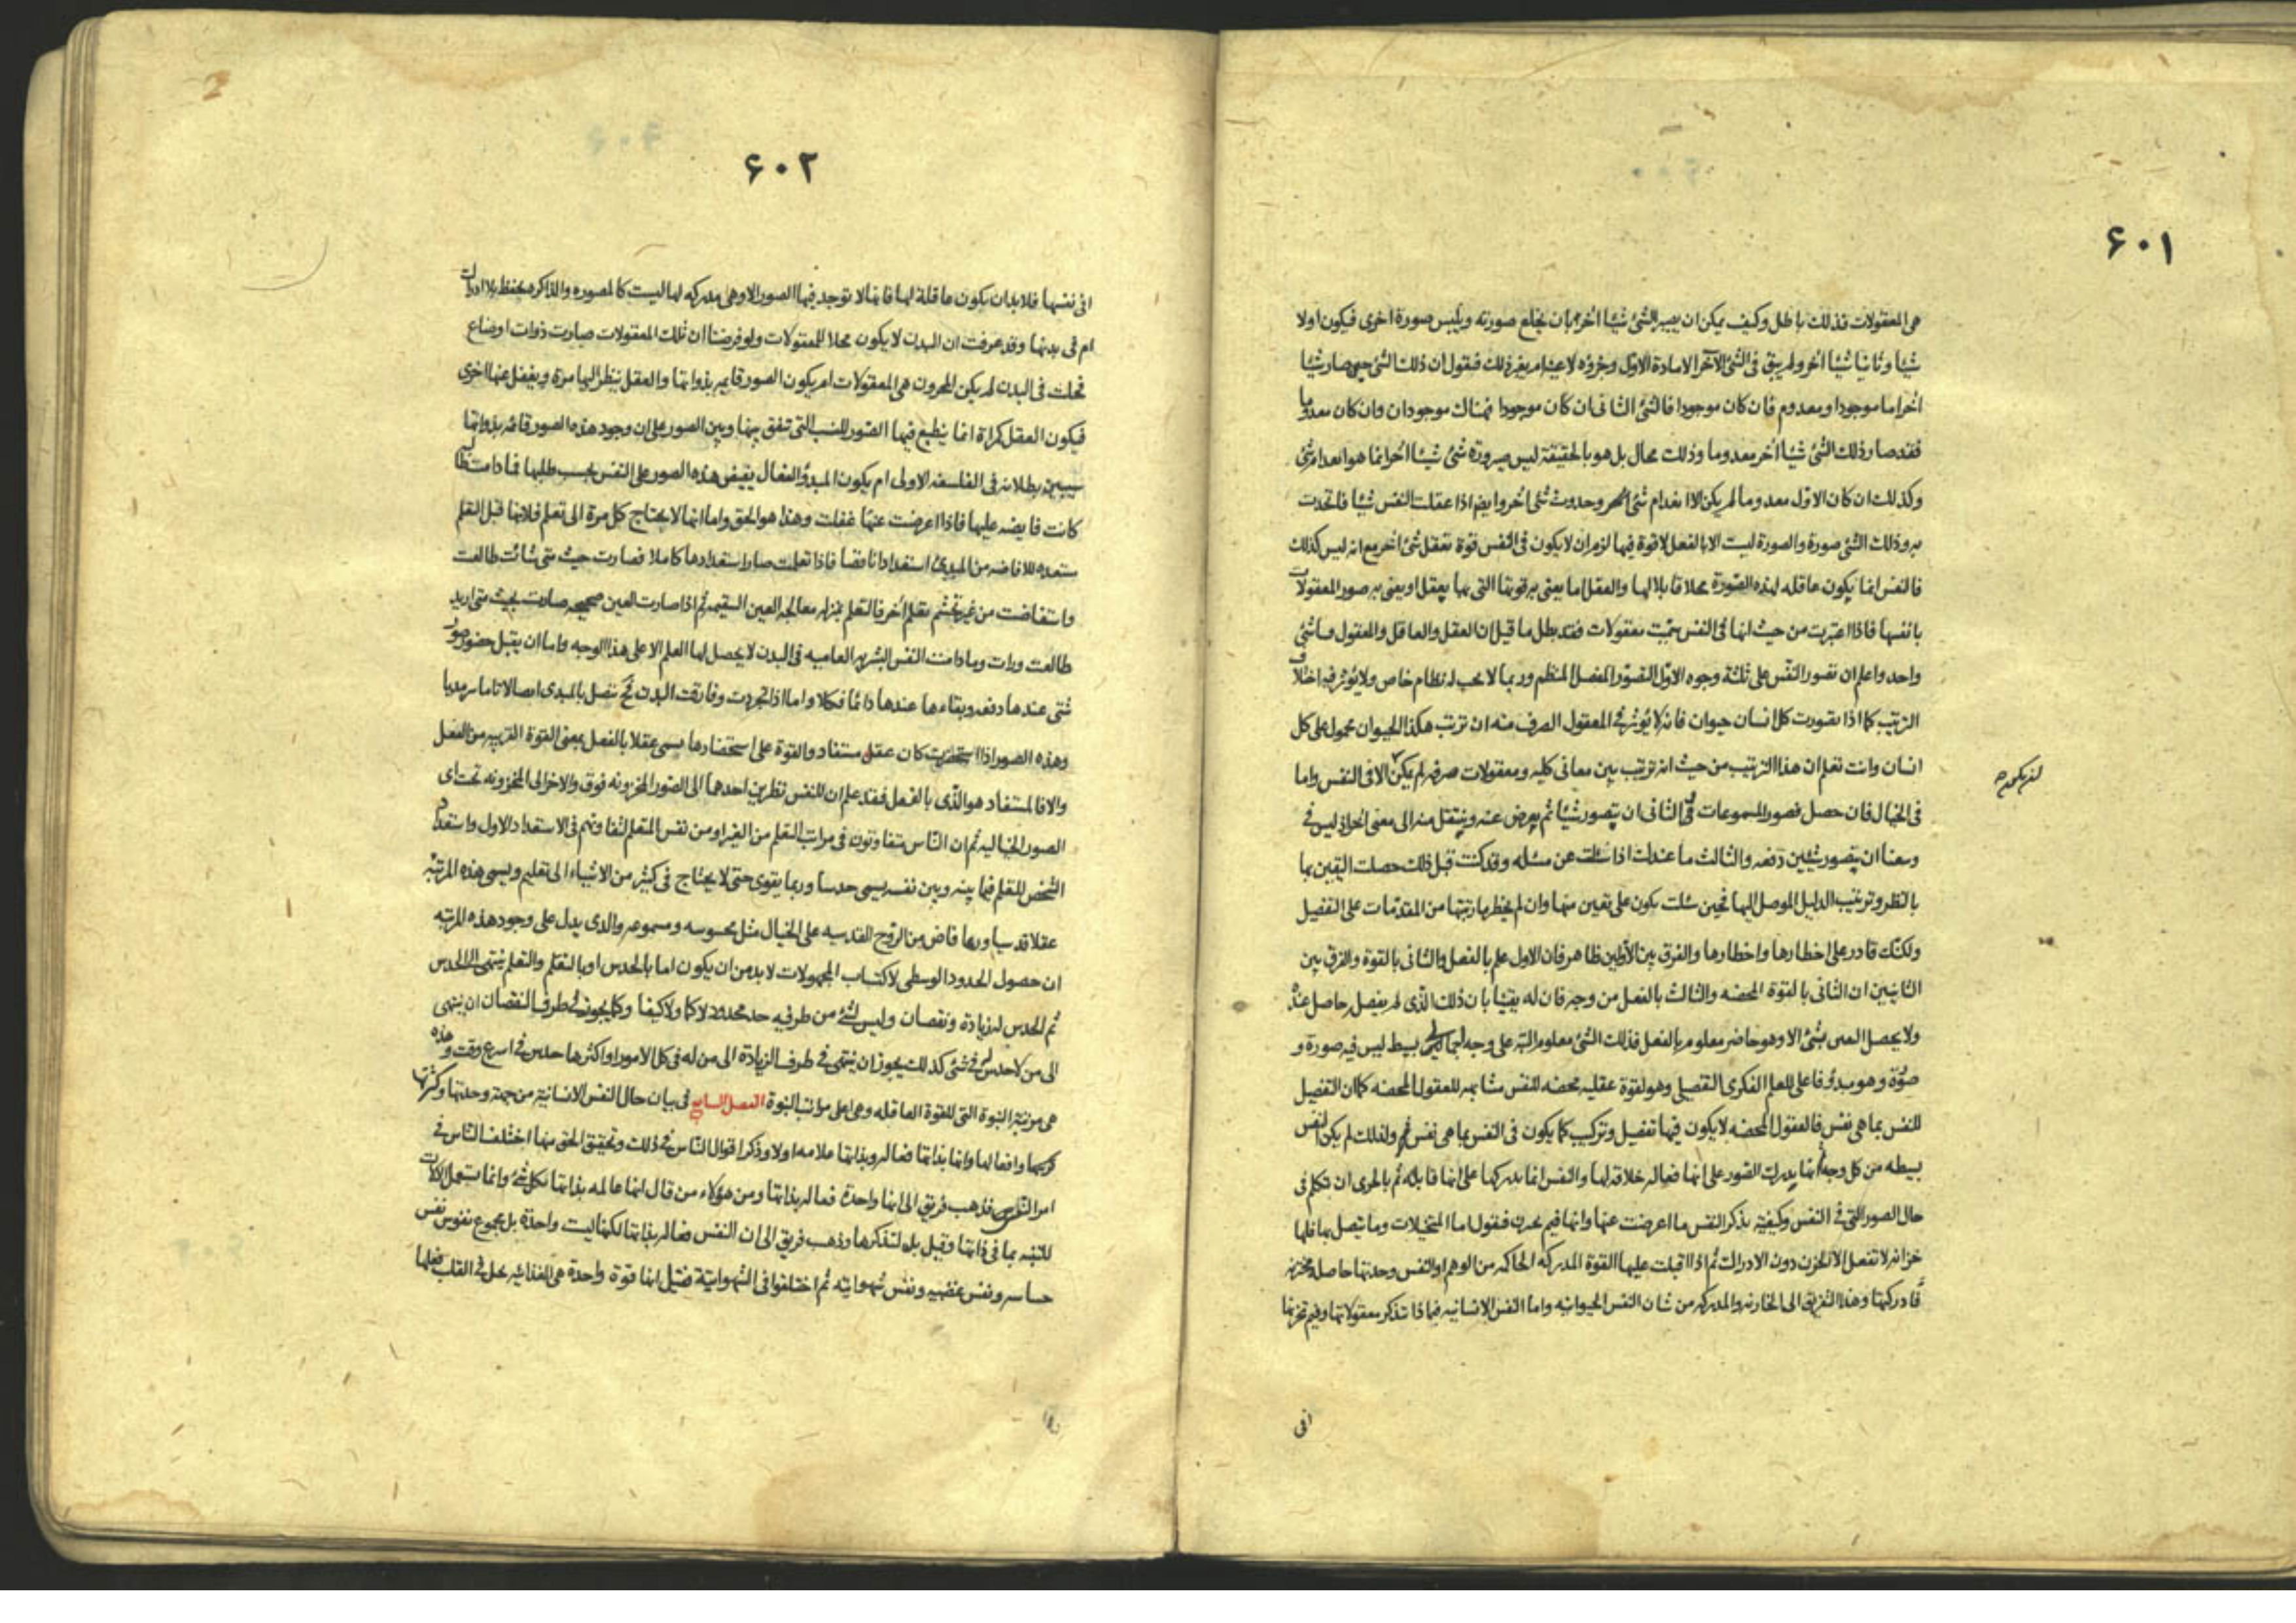 ۶۰۱
هى المعقولات فذلك باطل وكيف يمكن ان يصير الشئ شيئا اخر بان يخلع صورته ويلبس صورة اخرى فيكون اولا
شيئا وثانيا شيئا اخر ولم يبق فى الشئ الآخر الا مادة الاول وجزؤه لا غير فنقول ان ذلك الشئ حين صار شيئا
اخر اما موجود او معدوم فان كان موجودا فالشئ الثانى ان كان موجودا فهناك موجودان وان كان معدوما
فقد صار ذلك الشئ شيئا اخر معدوما وذلك محال بل هو بالحقيقة ليس صيرورة شئ شيئا اخر انما هو انعدام شئ
وكذلك ان كان الاول معدوما لم يكن الا انعدام شئ وحدوث شئ اخر وايضا اذا عقلت النفس شيئا فاتحدت
به وذلك الشئ صورة والصورة ليست الا بالفعل لا قوة فيها لزم ان لا يكون فى النفس قوة تعقل شئ اخر مع انه ليس كذلك
فالنفس انما يكون عاقله لهذه الصورة محلا قابلا لها والعقل اما يعنى به قوتها التى بها يعقل او يعنى به صور المعقولات
بانفسها فاذا اعتبرت من حيث انها فى النفس سميت معقولات فقد بطل ما قيل ان العقل والعاقل والمعقول شئ
واحد واعلم ان تصور النفس على ثلثة وجوه الاول التصور المفصل المنظم وربما لا يجب له نظام خاص ولا يؤثر فيه اختلاف
الترتيب كما اذا تصورت كل انسان حيوان فانه لا يؤثر فى المعقول الصرف منه ان ترتب هكذا الحيوان محمول على كل
انسان وانت تعلم ان هذا الترتيب من حيث انه ترتيب بين معانى كليه ومعقولات صرفه لم يكن الا فى النفس واما
فى الخيال فان حصل فصور المسموعات والثانى ان يتصور شيئا ثم يعرض عنه وينتقل منه الى معنى اخر اذ ليس فى
وسعنا ان يتصور شيئين دفعه والثالث ما عندك اذا سئلت عن مسئله وقد كنت قبل ذلك حصلت اليقين بها
بالنظر وترتيب الدليل الموصل اليها فحين سئلت يكون على يقين منها وان لم يخطر ترتيبها من المقدمات على التفصيل
ولكنك قادر على اخطارها واخطارها والفرق بين الاولين ظاهر فان الاول علم بالفعل والثانى بالقوة والفرق بين
الثانيين ان الثانى بالقوة المحضه والثالث بالفعل من وجه فان له يقينا بان ذلك الذى لم يفصل حاصل عنده
ولا يحصل بشئ الا وهو حاضر معلوم بالفعل فذلك الشئ معلوم البته على وجه بسيط ليس فيه صورة و
صورة وهو مبدؤ فاعلى للعلم الفكرى التفصيلى وهو لقوة عقليه محضه للنفس مشابهه للعقول المحضه كما ان التفصيل
للنفس بما هى نفس فالعقول المحضه لا يكون فيها تفصيل وتركيب كما يكون فى النفس بما هى نفس ولذلك لم يكن النفس
بسيطه من كل وجه انما يدرك الصور على انها فعاله خلاقه لها والنفس انما يدركها على انها قابله ثم بالحرى ان نتكلم فى
حال الصور التى فى النفس وكيفية تذكر النفس ما اعرضت عنها وانها فيم تخزن فنقول اما المتخيلات وما يتصل بها فلها
خزانه لا تفعل الا الخزن دون الادراك ثم اذا اقبلت عليها القوة المدركه الحاكمه من الوهم او النفس وحدتها حاصله مخزونه
فادركتها وهذا التفريق الى الخازنه والمدركه من شان النفس الحيوانيه واما النفس الانسانيه فماذا تذكر معقولاتها وفيم تخزنها
افى
۶۰۲
افى نفسها فلا بد ان يكون عاقلة لها فانها لا توجد فيها الصور الا وهى مدركه لها ليست كالمصوره والذاكره يحفظ بلا ادراك
ام فى بدنها وقد عرفت ان البدن لا يكون محلا للمعقولات ولو فرضنا ان تلك المعقولات صارت ذوات اوضاع
فحلت فى البدن لم يكن المخزون هى المعقولات ام يكون الصور قائمه بذواتها والعقل ينظر اليها مرة ويغفل عنها اخرى
فيكون العقل كمراة انما ينطبع فيها الصور للنسب التى تتفق بينها وبين الصور على ان وجود هذه الصور قائمه بذواتها
سيبين بطلانه فى الفلسفه الاولى ام يكون المبدؤ الفعال يفيض هذه الصور على النفس بحسب طلبها فما دامت
كانت فايضه عليها فاذا اعرضت عنها غفلت وهذا هو الحق واما انها لا يحتاج كل مرة الى تعلم فلانها قبل التعلم
مستعده للافاضه من المبدئ استعدادا ناقصا فاذا تعلمت صار استعدادها كاملا فصارت حيث متى شائت طالعت
واستفاضت من غير تجشم تعلم اخر فالتعلم بمنزله معالجه العين السقيمه ثم اذا صارت العين صحيحه صارت بحيث متى اريد
طالعت ورات وما دامت النفس البشريه العاميه فى البدن لا يحصل لها العلم الا على هذا الوجه واما ان يقبل حضور صور
شتى عندها دفعه وبقاءها عندها دائما فكلا واما اذا تجردت وفارقت البدن فح تتصل بالمبدئ اتصالا تاما سرمديا
وهذه الصور اذا استحضرت كان عقل مستفاد والقوة على استحضارها يسمى عقلا بالفعل بمعنى القوة القريبه من الفعل
والا فالمستفاد هو الذى بالفعل فقد علم ان للنفس نظرين احدهما الى الصور المخزونه فوق والاخر الى المخزونه تحت اى
الصور الخياليه ثم ان الناس متفاوتون فى مراتب التعلم من الغير او من نفس المتعلم لتفاوتهم فى الاستعداد الاول واستعداد
الشخص للتعلم فيما بينه وبين نفسه يسمى حدسا وربما يقوى حتى لا يحتاج فى كثير من الاشياء الى تعليم ويسمى هذه المرتبه
عقلا قدسيا وربما فاض من الروح القدسيه على الخيال مثل محسوسه ومسموعه والذى يدل على وجود هذه المرتبه
ان حصول الحدود الوسطى لاكتساب المجهولات لا بد من ان يكون اما بالحدس او بالتعلم والتعلم ينتهى الى الحدس
ثم الحدس له زيادة ونقصان وليس لشئ من طرفيه حد محدود لا كما ولا كيفا وكما يجوز فى طرف النقصان ان ينتهى
الى من لا حدس له فى شئ كذلك يجوز ان ينتهى فى طرف الزيادة الى من له فى كل الامور او اكثرها حدس فى اسرع وقت وهذه
هى مرتبة النبوة التى للقوة العاقله وهى اعلى مراتب النبوة الفصل السابع فى بيان حال النفس الانسانية من جهة وحدتها وكثرتها
وافعالها وانها بذاتها فعاله وبذاتها علامه اولا وذكر اقوال الناس فى ذلك وتحقيق الحق منها اختلف الناس فى
امر النفس فذهب فريق الى انها واحدة فعاله بذاتها ومن هؤلاء من قال انها عالمه بذاتها بكل شئ وانما تستعمل الآلات
للتنبه بما فى ذاتها وقيل بل لتذكرها وذهب فريق الى ان النفس فعاله بذاتها لكنها ليست واحدة بل مجموع نفوس نفس
حساسه ونفس غضبيه ونفس شهوانيه ثم اختلفوا فى الشهوانية فقيل انها قوة واحدة هى الغذائيه يحل فى القلب فعلها